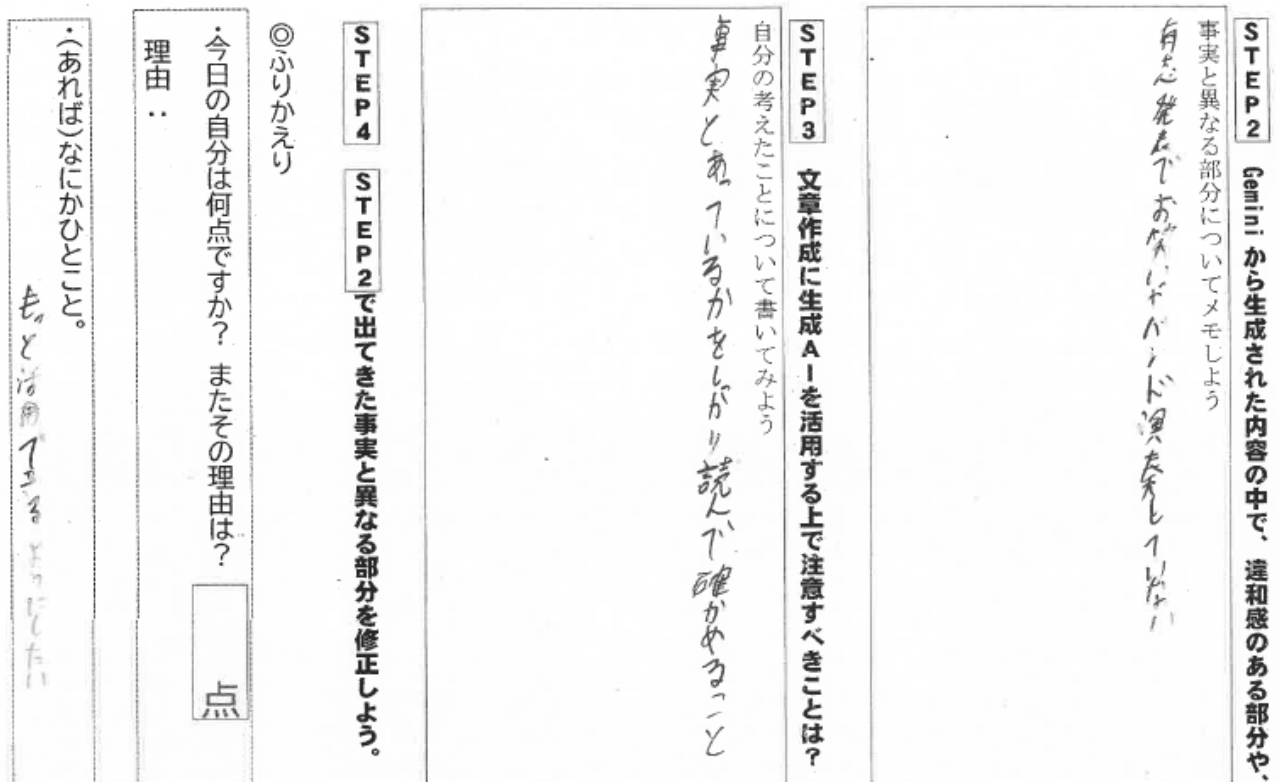 STEP2 Geminiから生成された内容の中で、違和感のある部分や、
事実と異なる部分についてメモしよう
有志発表でお笑いやバンド演奏をしていない
STEP3 文章作成に生成AIを活用する上で注意すべきことは?
自分の考えたことについて書いてみよう
事実とあっているかをしっかり読んで確かめること
STEP4 STEP2で出てきた事実と異なる部分を修正しよう。
◎ふりかえり
・今日の自分は何点ですか? またその理由は?
点
理由:
・(あれば)なにかひとこと。
もっと活用できるようにしたい